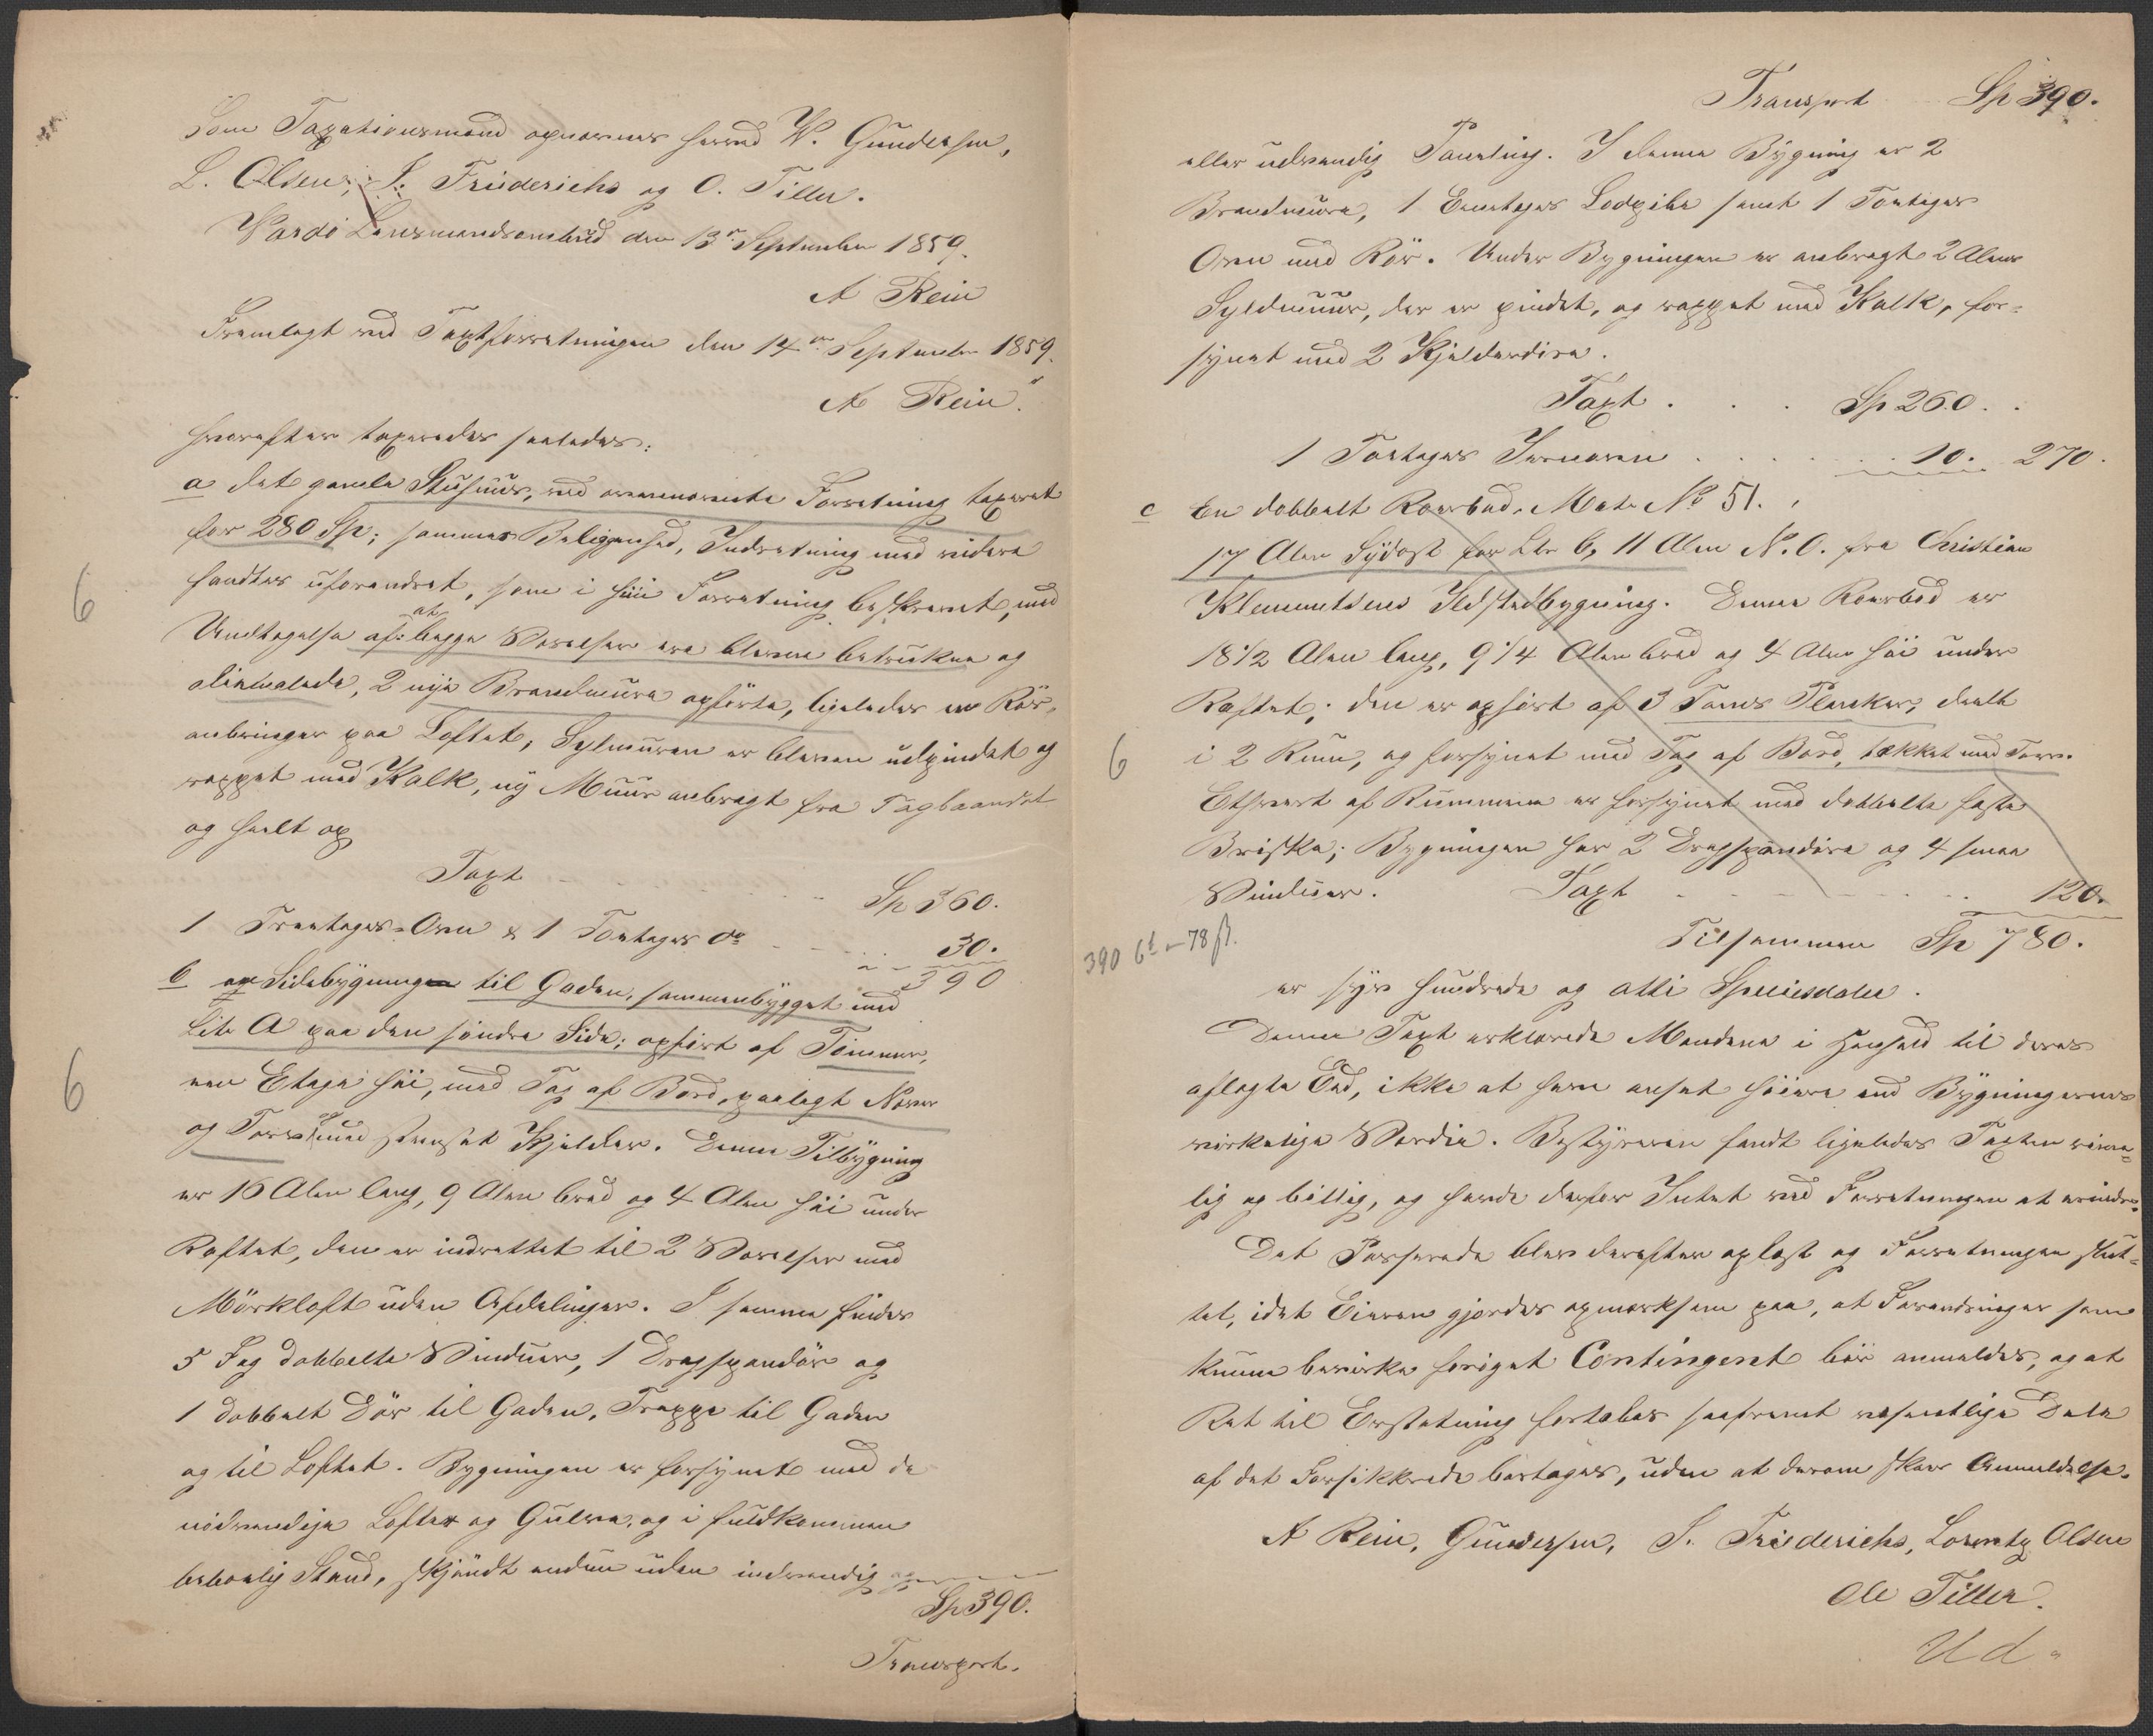 Som Taxationsmænd opnævnes herved W. Gundersen,
L. Olsen, S. Friederichs og O. Tiller.
Wardö Lensmandsombud den 13de September 1859.
A Rein
Fremlagt ved Taxtforretningen den 14de September 1859.
A Rein."
hvorefter taxeredes saaledes:
a det gamle Stuehuus, ved ovennævnte Forretning taxeret
for 280 Sp; sammes Beliggenhed, Indretning med videre
fandtes uforandret, som i hiin Forretning beskrevet, med
Undtagelse af: at begge Værelser ere blevne betrukne og
oliemalede, 2 nye Brandmure opförte, ligeledes en Rör-
anbringer paa Loftet, Sylmuren er bleven udpindet og
rappet med Kalk, ny Muur anbragt fra Tagbaandet
og heelt op
Taxt Sp 360.
1 Treetages-Ovn & 1 Toetages do 30.
390
b en Sidebygning til Gaden, sammenbygget med
Litr A paa den söndre Side; opfört af Tömmer,
een Etage höi, med Tag af Bord, paalagt Næver
og Torv med Kjelder. Denne Tilbygning
er 16 Alen lang, 9 Alen bred og 4 Alen höi under
Raftet, den er indrettet til 2 Værelser med
Mörkloft uden Afdelinger. I samme findes
5 Fag dobbelte Vinduer, 1 Dragspandör og
1 dobbelt Dör til Gaden, Trappe til Gaden
og til Loftet. Bygningen er forsynet med de
nödvendige Lofter og Gulve, og i fuldkommen
beboelig Stand, skjöndt endnu uden indvendig
Sp 390.
Transport.
Transport Sp 390.
eller udvendig Paneling. I denne Bygning er 2
Brandmure, 1 Eenetages Lodpibe samt 1 Toetages
Ovn med Rör. Under Bygningen er anbragt 2 Alens
Syldmuur, der er pindet, og rappet med Kalk, for-
synet med 2 Kjelderdöre.
Taxt . . . Sp 260. .
1 Toetages Jernovn . . . . 10. 270.
c En dobbelt Roerbod, Matr No 51.,
17 Alen Sydost for Litr b, 11 Alen N.O. fra Christian
Klemmetsens Ildstedbygning. Denne Roerbod er
18 1/2 Alen lang, 9 1/4 Alen bred og 4 Alen höi under
Raftet; den er opfört af 3 Toms Planker, deelt
i 2 Rum, og forsynet med Tag af Bord, tækket med Torv.
Ethvert af Rummene er forsynet med dobbelte faste
Briske; Bygningen har 2 Dragspandöre og 4 smaa
Vinduer. Taxt 120.
Tilsammen Sp 780.
390 6 t - 78 ß.
er syv hundrede og otti Speciesdaler.
Denne Taxt erklærede Mændene i Henhold til deres
aflagte Eed, ikke at have ansat höiere end Bygningernes
virkelige Værdie. Bestyreren fandt ligeledes Taxten rime-
lig og billig, og havde derfor Intet ved Forretningen at erindre.
Det Passerede blev derefter oplæst og Forretningen slut-
tet, idet Eieren gjordes opmærksom paa, at Forandringer som
kunne bevirke foröget Contingent bör anmeldes, og at
Ret til Erstatning fortabes saafremt væsentlige Dele
af det Forsikkrede bortages, uden at derom skeer Anmeldelse.
A Rein, Gundersen, S. Friederichs, Lorentz Olsen
Ole Tiller.
Ud.
6
6
6